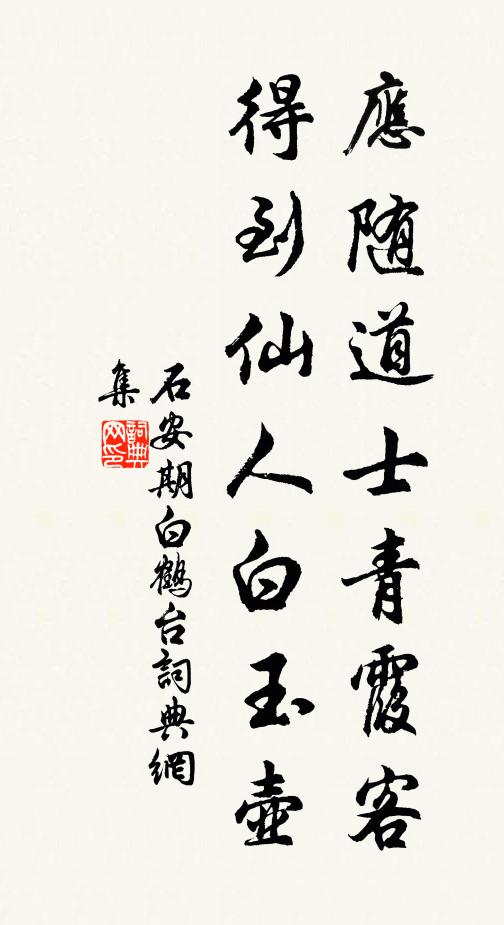 應随道士青霞客
得到仙人白玉壺
石安期白鶴台詞典網
集
詞典網印